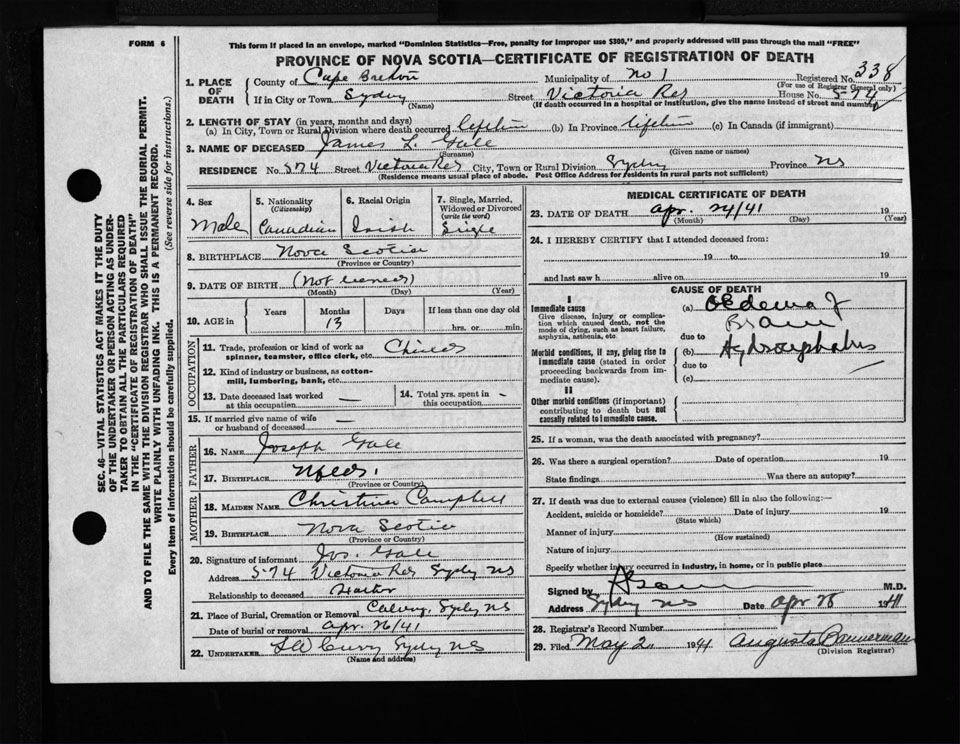 FORM 6
This form if placed in an envelope, marked "Dominion Statistics—Free, penalty for improper use $300," and properly addressed will pass through the mail "FREE"
PROVINCE OF NOVA SCOTIA—CERTIFICATE OF REGISTRATION OF DEATH
Registered No. 338
(For use of Registrar General only)
1. PLACE OF DEATH
County of Cape Breton Municipality of No 1
If in City or Town Sydney Street Victoria Rd House No. 574
(Name) (If death occurred in a hospital or institution, give the name instead of street and number)
2. LENGTH OF STAY (in years, months and days)
(a) In City, Town or Rural Division where death occurred lifetime (b) In Province lifetime (c) In Canada (if immigrant)
3. NAME OF DECEASED James L. Gale
(Surname) (Given name or names)
RESIDENCE No. 574 Street Victoria Rd City, Town or Rural Division Sydney Province NS
(Residence means usual place of abode. Post Office Address for residents in rural parts not sufficient)
4. Sex Male
5. Nationality (Citizenship) Canadian
6. Racial Origin Irish
7. Single, Married, Widowed or Divorced (write the word) Single
8. BIRTHPLACE Nova Scotia
(Province or Country)
9. DATE OF BIRTH (Not
(Month) (Day) (Year)
10. AGE in Years Months 13 Days If less than one day old hrs. or min.
OCCUPATION
11. Trade, profession or kind of work as spinner, teamster, office clerk, etc. Child
12. Kind of industry or business, as cotton-mill, lumbering, bank, etc.
13. Date deceased last worked at this occupation —
14. Total yrs. spent in this occupation -
15. If married give name of wife or husband of deceased —
FATHER
16. NAME Joseph Gale
17. BIRTHPLACE Nfld.
(Province or Country)
MOTHER
18. MAIDEN NAME Christina Campbell
19. BIRTHPLACE Nova Scotia
(Province or Country)
20. Signature of informant Jos. Gale
Address 574 Victoria Rd Sydney NS
Relationship to deceased Father
21. Place of Burial, Cremation or Removal Calvary, Sydney NS
Date of burial or removal Apr. 26/41
22. UNDERTAKER Curry Sydney NS
(Name and address)
MEDICAL CERTIFICATE OF DEATH
23. DATE OF DEATH Apr. 24/41 19
(Month) (Day) (Year)
24. I HEREBY CERTIFY that I attended deceased from:
19 to 19
and last saw h alive on 19
CAUSE OF DEATH
I
Immediate cause
Give disease, injury or complication which caused death, not the mode of dying, such as heart failure, asphyxia, asthenia, etc.
(a) Oedema of Brain
due to
Morbid conditions, if any, giving rise to immediate cause (stated in order proceeding backwards from immediate cause).
(b) Hydrocephalus
due to
(c)
II
Other morbid conditions (if important) contributing to death but not causally related to immediate cause.
25. If a woman, was the death associated with pregnancy?
26. Was there a surgical operation? Date of operation 19
State findings Was there an autopsy?
27. If death was due to external causes (violence) fill in also the following:—
Accident, suicide or homicide? Date of injury 19
(State which)
Manner of injury
(How sustained)
Nature of injury
Specify whether injury occurred in industry, in home, or in public place
Signed by M.D.
Address Sydney NS Date Apr 28 1941
28. Registrar's Record Number
29. Filed May 2 1941 Augusta Bannerman
(Division Registrar)
SEC. 46—VITAL STATISTICS ACT MAKES IT THE DUTY
OF THE UNDERTAKER OR PERSON ACTING AS UNDER-
TAKER TO OBTAIN ALL THE PARTICULARS REQUIRED
IN THE "CERTIFICATE OF REGISTRATION OF DEATH"
AND TO FILE THE SAME WITH THE DIVISION REGISTRAR WHO SHALL ISSUE THE BURIAL PERMIT.
WRITE PLAINLY WITH UNFADING INK. THIS IS A PERMANENT RECORD.
Every item of information should be carefully supplied. (See reverse side for instructions.)